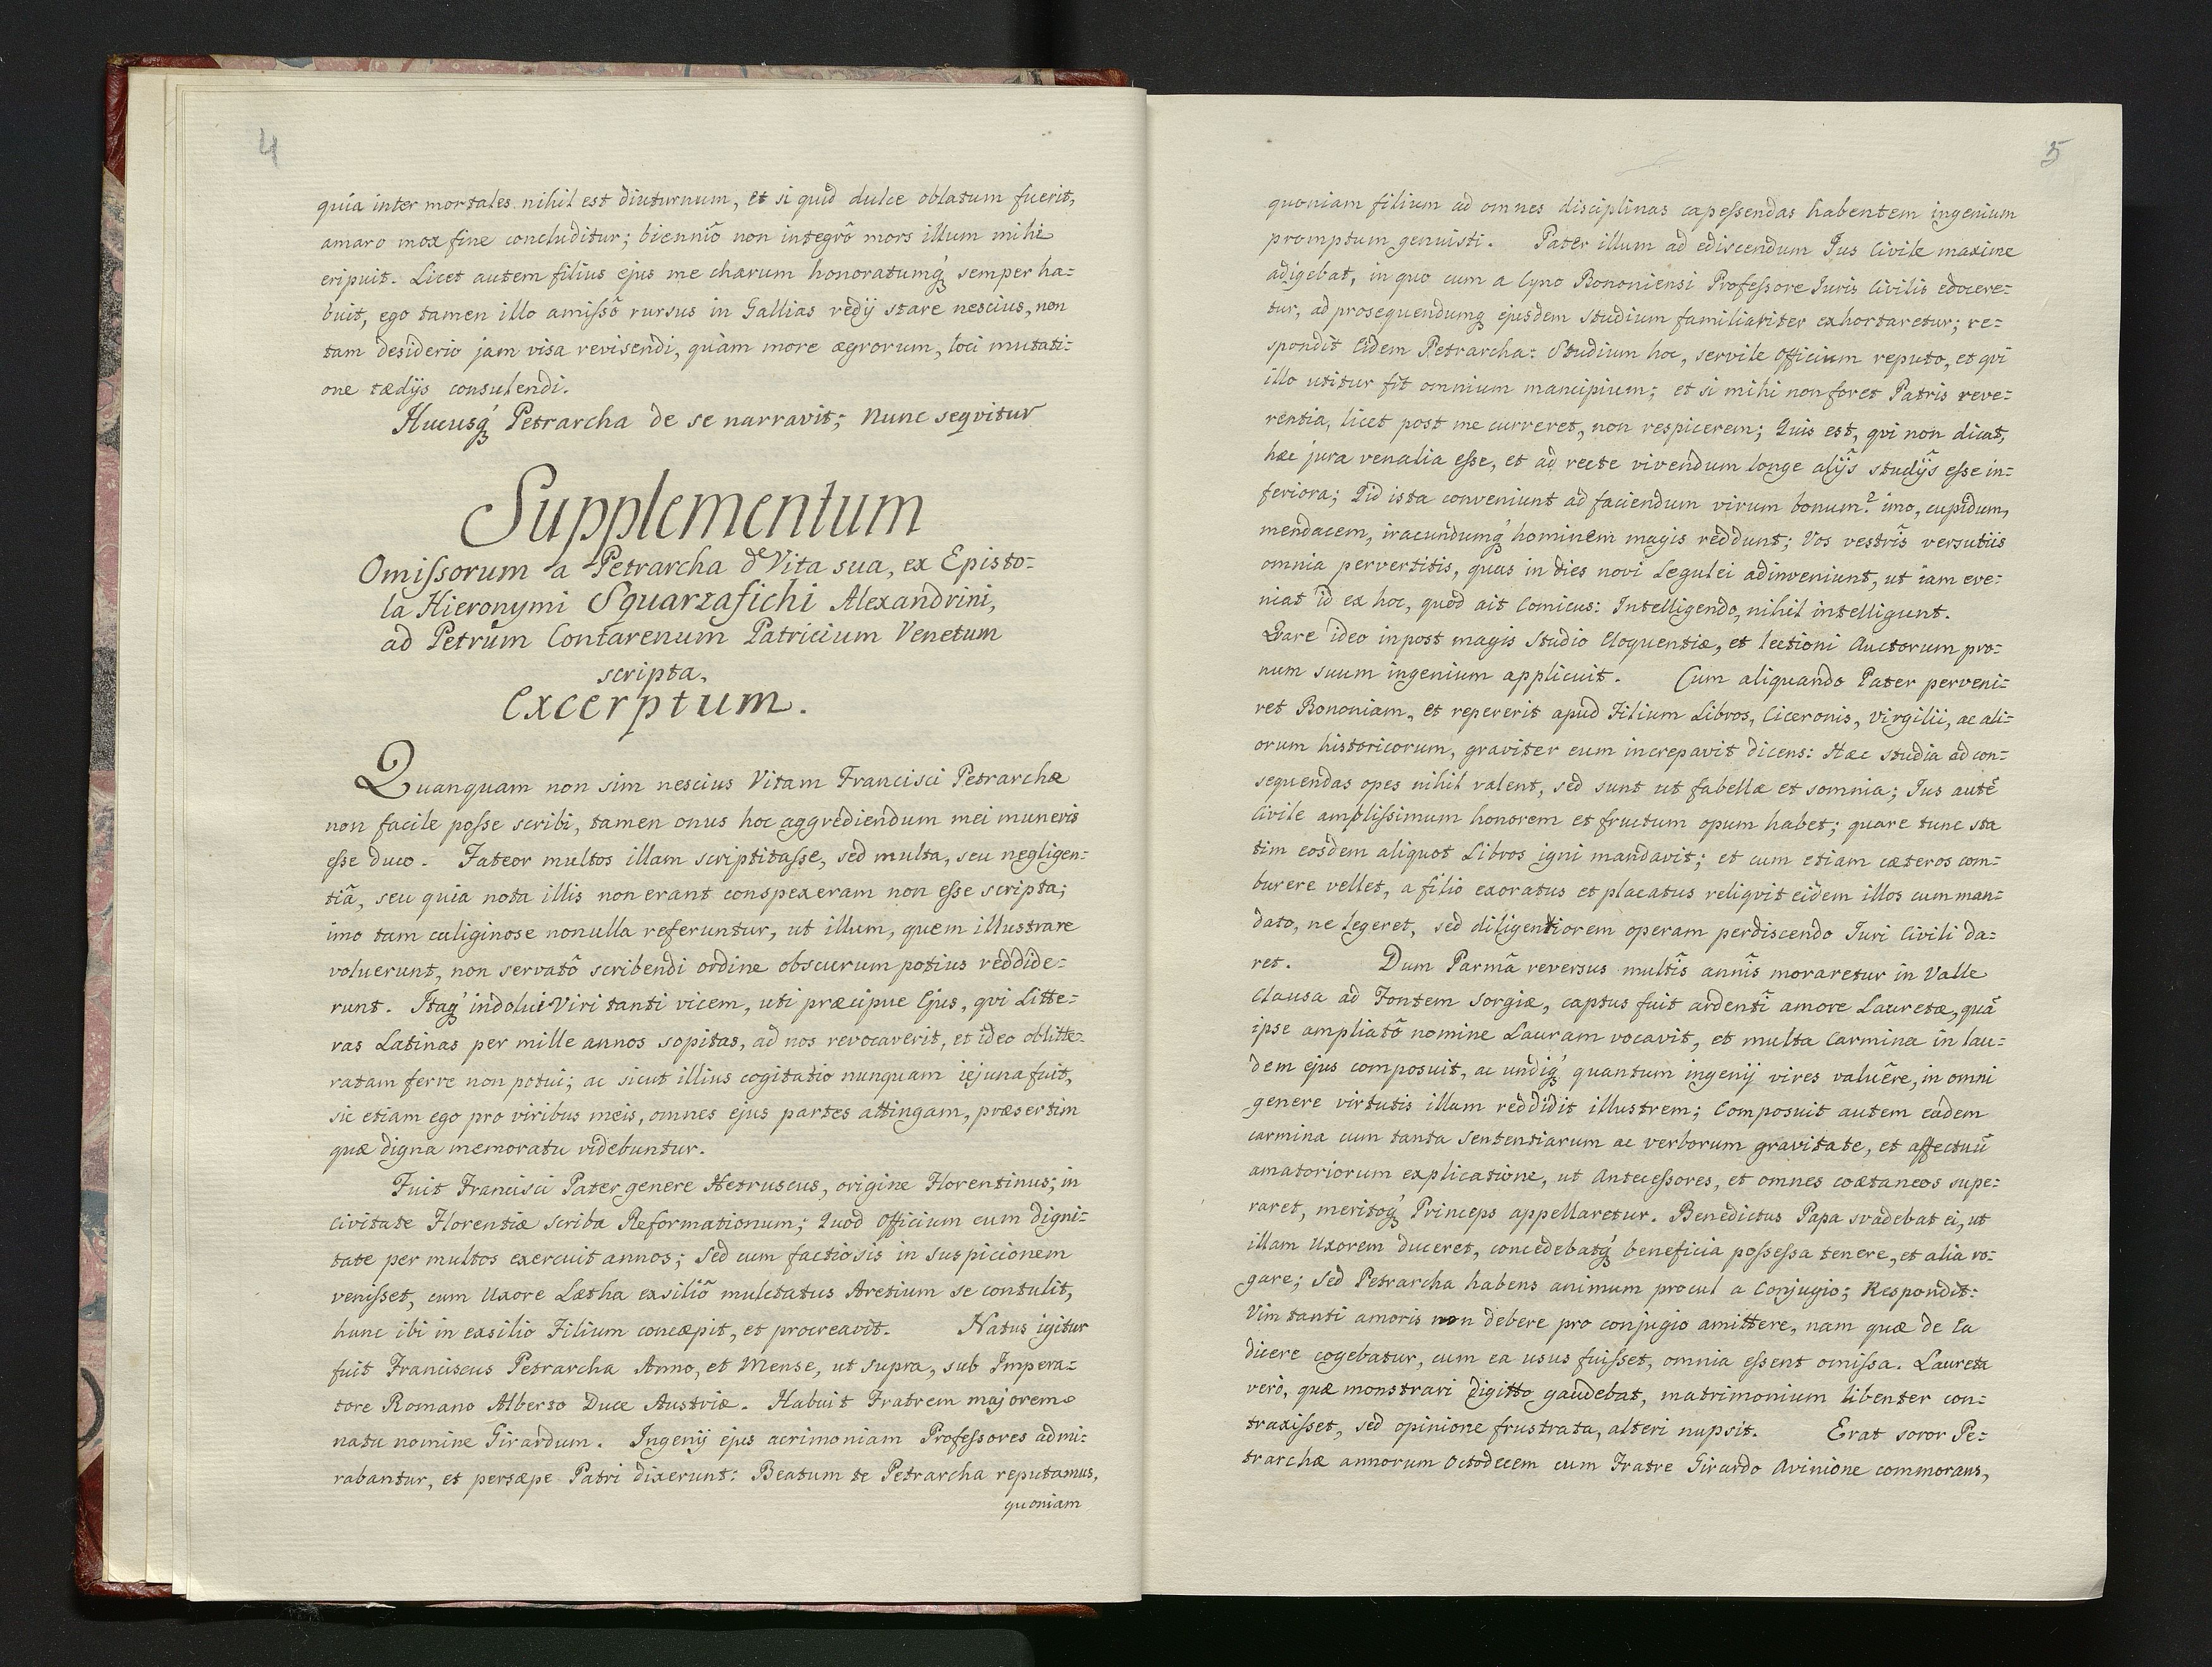 4
quia inter mortales nihil est diuturnum, et si quid dulce oblatum fuerit,
amaro mox fine concluditur; bienniô non integrô mors illum mihi
eripuit. Licet autem filius ejus me charum honoratumq́ semper ha=
buit, ego tamen illo amiſsô rursus in Gallias redij stare nescius, non
tam desiderio jam visa revisendi, quàm more ægrorum, loci mutati=
one tædijs consulendi.
Hucusq́ Petrarcha de se narravit; Nunc seqvitur
Supplementum
Omiſsorum a Petrarcha de Vita sua, ex Episto=
la Hieronymi Squarzafichi Alexandrini,
ad Petrum Contarenum Patricium Venetum
scripta.
Excerptum.
Quanquam non sim nescius Vitam Francisci Petrarchæ
non facile poſse scribi, tamen onus hoc aggrediendum mei muneris
eſse duco. Fateor multos illam scriptitaſse, sed multa, seu negligen=
tiâ, seu quia nota illis non erant conspexeram non eſse scripta;
imo tam caliginose nonulla referuntur, ut illum, quem illustrare
voluerunt, non servatô scribendi ordine obscurum potius reddide=
runt. Itaq́ indolui Viri tanti vicem, uti præcipue Ejus, qvi Litte=
ras Latinas per mille annos sopitas, ad nos revocaverit, et ideo oblitte=
ratam ferre non potui; ac sicut illius cogitatio nunquam iejuna fuit,
sic etiam ego pro viribus meis, omnes ejus partes attingam, præsertim
quæ digna memoratu videbuntur.
Fuit Francisci Pater genere Hetruscus, origine Florentinus; in
Civitate Florentiæ scriba Reformationum; Quod Officium cum digni=
tate per multos exercuit annos; sed cum factiosis in suspicionem
veniſset, cum Uxore Lætha exsiliô mulctatus Aretium se contulit,
hunc ibi in exsilio Filium concæpit, et procreavit. Natus igitur
fuit Franciscus Petrarcha Anno, et Mense, ut supra, sub Impera=
tore Romano Alberto Duce Austriæ. Habuit Fratrem majorem
natu nomine Girardum. Ingenij ejus acrimoniam Profeſsores admi=
rabantur, et persæpe Patri dixerunt: Beatum te Petrarcha reputamus,
quoniam
5
quoniam filium ad omnes disciplinas capeſsendas habentem ingenium
promptum genuisti. Pater illum ad ediscendum Jus Civile maxime
adigebat, in quo cum a Cyno Bononiensi Profeſsore Juris Civilis edocere=
tur, ad prosequendumq́ ejusdem studium familiariter exhortaretur; re=
spondit Eidem Petrarcha: Studium hoc, servile Officium reputo, et qvi
illo utitur fit omnium mancipium; et si mihi non foret Patris reve=
rentia, licet post me curreret, non respicerem; Quis est, qvi non dicat,
hæc jura venalia eſse, et ad recte vivendum longe alijs̃ studijs̃ eſse in=
feriora; Qid ista conveniunt ad faciendum virum bonum? imo, cupidum,
mendacem, iracundumq́ hominem magis reddunt; Vos vestris̃ versutiis
omnia pervertitis, quas in dies novi Legulei adinveniunt, ut iam eve=
niat id ex hoc, quod ait Comicus: Intelligendo, nihil intelligunt.
Qare ideo inpost magis Studio Eloquentiæ, et lectioni Auctorum pro=
num suum ingenium applicuit. Cum aliquando Pater perveni=
ret Bononiam, et repererit apud Filium Libros, Ciceronis, Virgilii, ac ali=
orum historicorum, graviter eum increpavit dicens: Hæc studia ad con=
sequendas opes nihil valent, sed sunt ut fabellæ et somnia; Jus autẽ
Civile ampliſsimum honorem et fructum opum habet; quare tunc sta
tim eosdem aliquot Libros igni mandavit; et cum etiam cæteros com=
burere vellet, a filio exoratus et placatus reliqvit eidem illos cum man=
dato, ne legeret, sed diligentiorem operam perdiscendo Juri Civili da=
ret. Dum Parmâ reversus multis̃ annis̃ moraretur in Valle
Clausa ad Fontem Sorgiæ, captus fuit ardentĩ amore Lauretæ, quã
ipse ampliatô nomine Lauram vocavit, et multa Carmina in lau=
dem ejus composuit, ac undiq́ quantum ingenij vires valuêre, in omni
genere virtutis illam reddidit illustrem; Composuit autem eadem
carmina cum tanta Sententiarum ac verborum gravitate, et affectuũ
amatoriorum explicatione, ut Anteceſsores, et omnes coætaneos supe=
raret, meritoq́ Princeps appellaretur. Benedictus Papa svadebat ei, ut
illam Uxorem duceret, concedebatq́ beneficia poſseſsa tenere, et alia ro=
gare; Sed Petrarcha habens animum procul a Conjugio; Respondit:
Vim tanti amoris non debere pro conjugio amittere, nam quæ de Ea
dicere cogebatur, cum ea usus fuiſset, omnia eſsent omiſsa. Laureta
verò, quæ monstrari digitto gaudebat, matrimonium libenter con=
traxiſset, sed opinione frustrata, alteri nupsit. Erat soror Pe=
trarchæ annorum Octodecem cum Fratre Girardo Avinione commorans,